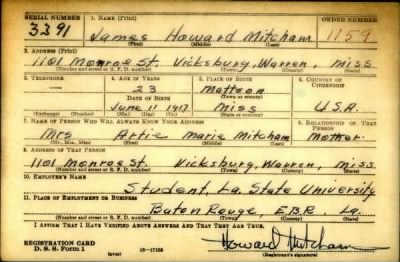 SERIAL NUMBER 1. NAME (Print) ORDER NUMBER
3291 James Howard Mitcham 1159
(First) (Middle) (Last)
2. ADDRESS (Print)
1101 Monroe St. Vicksburg, Warren, Miss
(Number and street or R. F. D. number) (Town) (County) (State)
3. TELEPHONE 4. AGE IN YEARS 5. PLACE OF BIRTH 6. COUNTRY OF CITIZENSHIP
— 23 Mattson
DATE OF BIRTH (Town or county)
June 11 1917 Miss U.S.A.
(Exchange) (Number) (Mo.) (Day) (Yr.) (State or country)
7. NAME OF PERSON WHO WILL ALWAYS KNOW YOUR ADDRESS 8. RELATIONSHIP OF THAT PERSON
Mrs Artie Marie Mitcham Mother
(Mr., Mrs., Miss) (First) (Middle) (Last)
9. ADDRESS OF THAT PERSON
1101 Monroe St. Vicksburg, Warren, Miss
(Number and street or R. F. D. number) (Town) (County) (State)
10. EMPLOYER'S NAME
Student, La. State University
11. PLACE OF EMPLOYMENT OR BUSINESS
Baton Rouge, E.B.R. La.
(Number and street or R. F. D. number) (Town) (County) (State)
I AFFIRM THAT I HAVE VERIFIED ABOVE ANSWERS AND THAT THEY ARE TRUE.
REGISTRATION CARD
D. S. S. Form 1 (over) 16—17105 Howard Mitcham
(Registrant's signature)